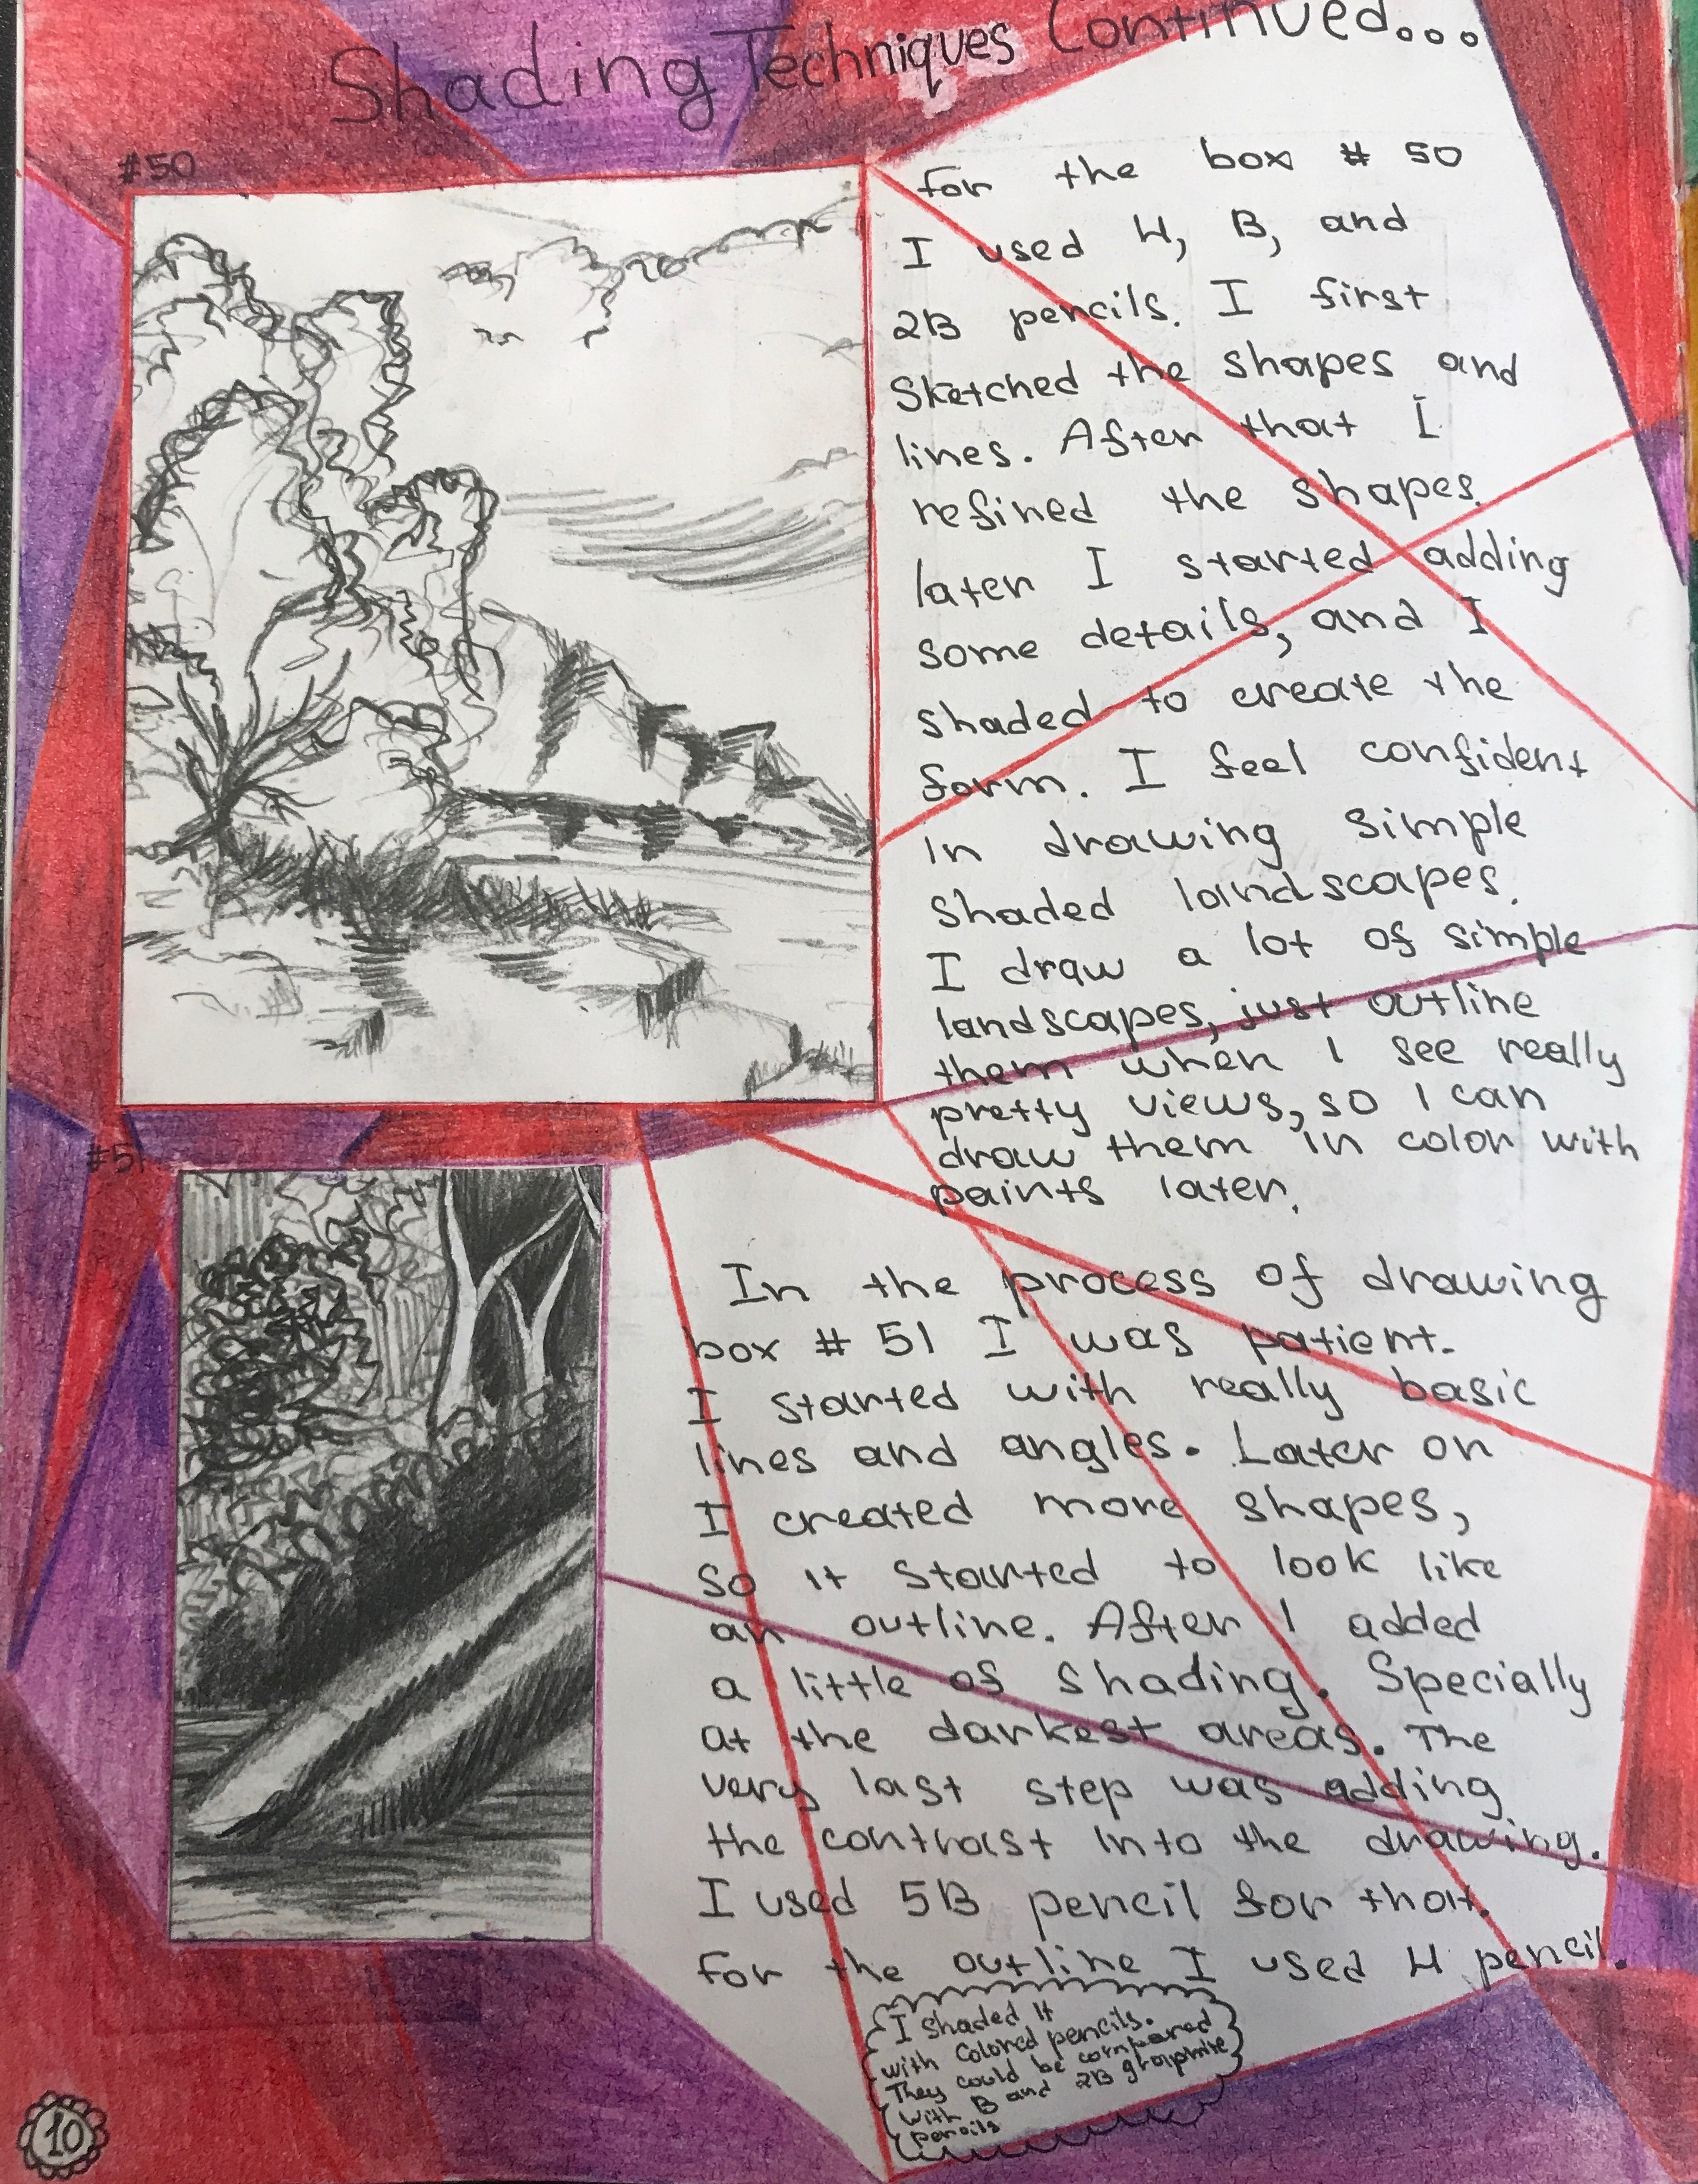 Shading Techniques Continued...
#50
For the box # 50
I used H, B, and
2B pencils. I first
Sketched the shapes and
lines. After that I
refined the shapes.
later I started adding
some details, and I
shaded to create the
form. I feel confident
in drawing simple
shaded landscapes.
I draw a lot of simple
landscapes, just outline
them when I see really
pretty views, so I can
draw them in color with
paints later.
#51
In the process of drawing
box # 51 I was patient.
I started with really basic
lines and angles. Later on
I created more shapes,
so it started to look like
an outline. After I added
a little of shading. Specially
at the darkest areas. The
very last step was adding
the contrast into the drawing.
I used 5B pencil for that.
for the outline I used H pencil.
I shaded it
with Colored pencils.
They could be compared
with B and 2B graphite
pencils
10